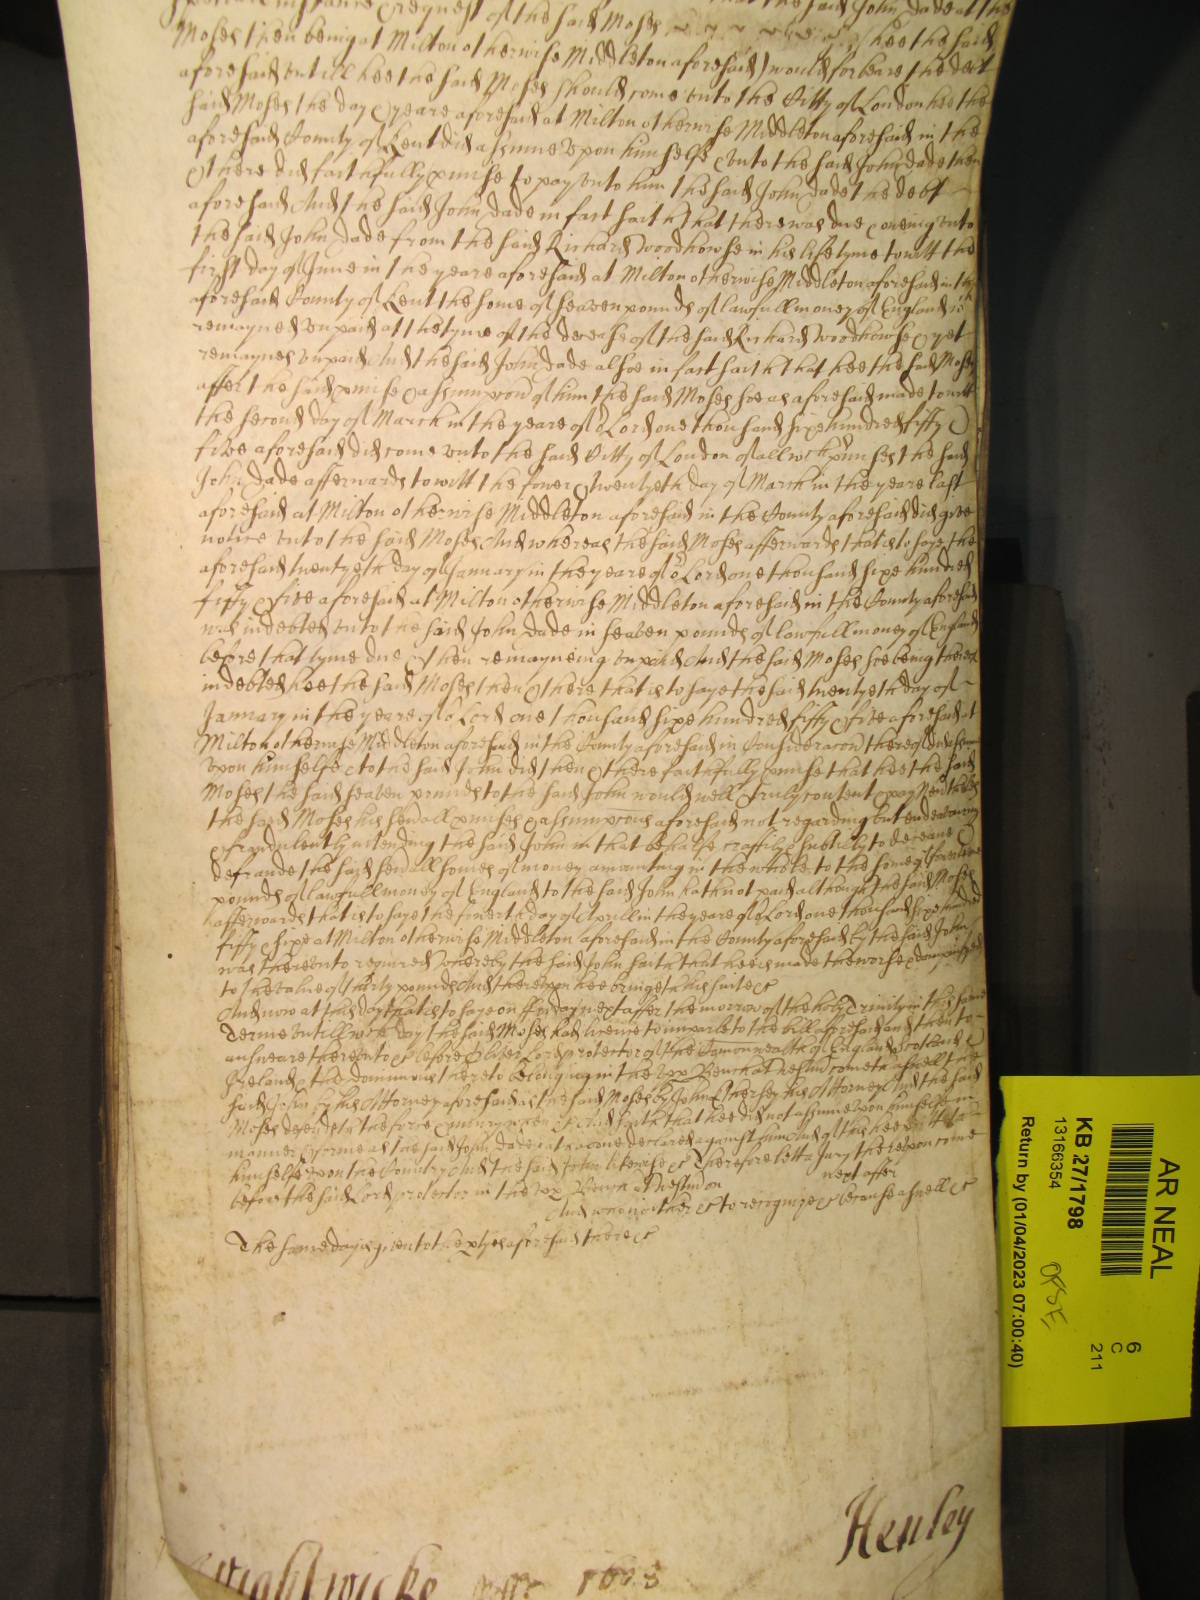 request of the said Moses that the said John Dade at the
Moses then being at Milton otherwise Middleton aforesaid would forbeare the debt
aforesaid untill hee the said Moses should come unto the Citty of London hee the
said Moses the day & yeare aforesaid at Milton otherwise Middleton aforesaid in the
aforesaid County of Kent did assume upon himselfe & unto the said John Dade then
& there did faithfully pmise to pay unto him the said John Dade the debt
aforesaid And the said John Dade in fact saith that there was due & oweing unto
the said John Dade from the said Richard Woodhowse in his life tyme to witt the
first day of June in the yeare aforesaid at Milton otherwise Middleton aforesaid in the
aforesaid County of Kent the some of seaven pounds of lawfull money of England
remayned unpaid at the tyme of the decease of the said Richard Woodhowse & yet
remaynes unpaid And the said John Dade alsoe in fact saith that hee the said Moses
after the said pmise & assumpcon of him the said Moses soe as aforesaid made to witt
the second day of March in the yeare of or Lord one thousand sixe hundred fifty &
five aforesaid did come unto the said Citty of London of all wch pmisses the said
John Dade afterwards to witt the fower & twentyeth day of March in the yeare last
aforesaid at Milton otherwise Middleton aforesaid in the County aforesaid did give
notice unto the said Moses And whereas the said Moses afterwards that is to saye the
aforesaid twentyeth day of January in the yeare of or Lord one thousand sixe hundred
fifty & five aforesaid at Milton otherwise Middleton aforesaid in the County aforesaid
was indebted unto the said John Dade in seaven pounds of lawfull money of England
before that tyme due & then remayneing unpaid And the said Moses soe being thereof
indebted hee the said Moses then & there that is to saye the said twentyeth day of
January in the yeare of or Lord one thousand sixe hundred fifty & five aforesaid at
Milton otherwise Middleton aforesaid in the County aforesaid in Consideracon thereof did assume
upon himselfe & to the said John did then & there faithfully pmise that hee the said
Moses the said seaven pounds to the said John would well & truly content & pay Neverthelesse
the said Moses his sevall pmises & assumpcons aforesaid not regarding but endeavouring
& fraudulently intending the said John in that behalfe craftily & subtilly to deceave &
defraude the said sevall somes of money amounting in the whole to the some of fourteene
pounds of lawfull money of England to the said John hath not paid although the said Moses
afterwards that is to saye the fowerth day of Aprill in the yeare of or Lord one thousand sixe hundred
fifty & sixe at Milton otherwise Middleton aforesaid in the County aforesaid by the said John
was thereunto required Whereby the said John saith that hee is made the worse & dampnified
to the value of thirty pounds And thereupon hee bringeth his suite &c
And now at this day that is to saye on Fryday next after the morrow of the holy Trinity in this same
Terme untill wch day the said Moses had licence to imparle to the bill aforesaid and then to
answeare thereunto &c before Oliver Lord protector of the Comonwealth of England Scotland &
Ireland & the dominions thereto belonging in the upp Bench at Westm cometh aswell the
said John by his Attorney aforesaid as the said Moses by John Hersey his Attorney And the said
Moses defends the force & iniury when &c And saith that hee did not assume upon himselfe in
manner & forme as the said John Dade above declared against him And of this hee putteth
himselfe upon the Country And the said John likewise &c Therefore lett a Jury thereupon come
before the said Lord protector in the upp Bench at Westm on next after
And who neither &c to recognize &c because aswell &c
The same day is given to the ptyes aforesaid there &c
Henley
Wightwicke
AR NEAL
KB 27/1798
13166354
Return by (01/04/2023 07:00:40)
6
C
211